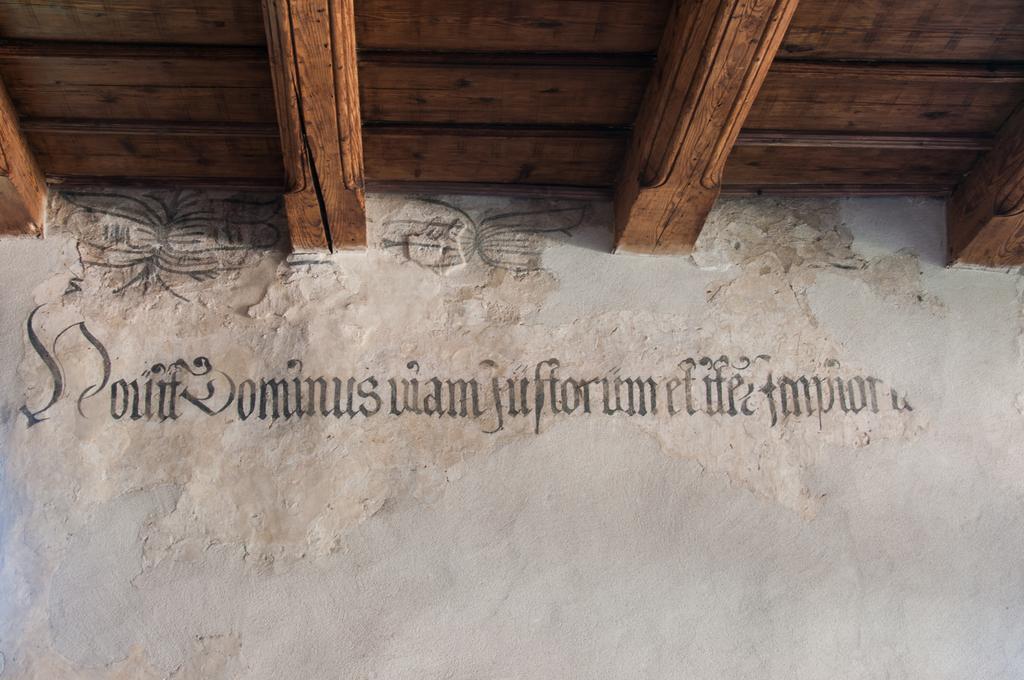 Novit Dominus viam Justorum et iter Impioru